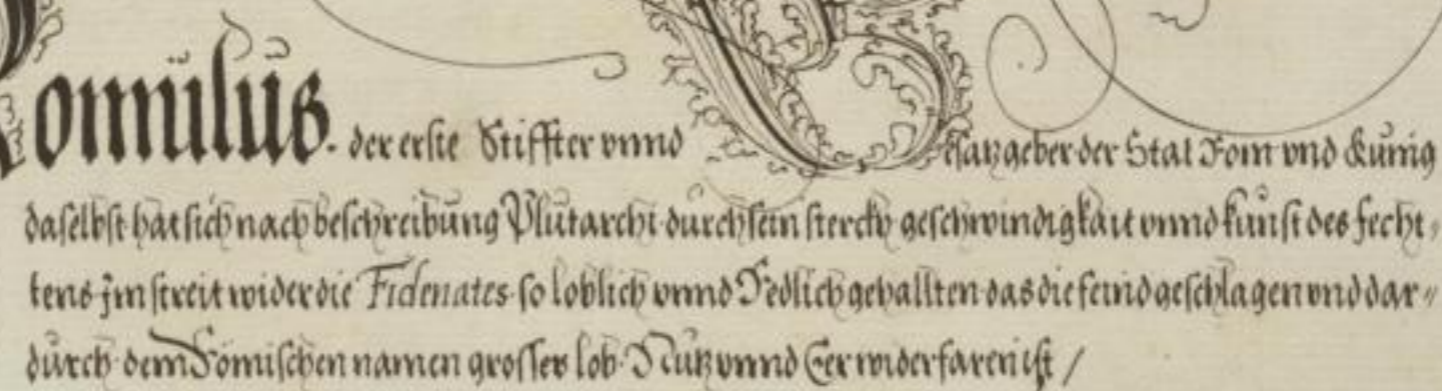 Romulus. der erste Stiffter vnnd Gesatzgeber der Stat Rom vnd Kunig
daselbst hat sich nach beschreibung Plutarchi durch sein sterckh geschwindigkait vnnd kunst des fecht,
tens jm streit wider die Fidenates so loblich vnnd Redlich gehallten das die feind geschlagen vnd dar„
durch dem Römischen namen grosses lob Nutz vnnd Eer widerfaren ist /